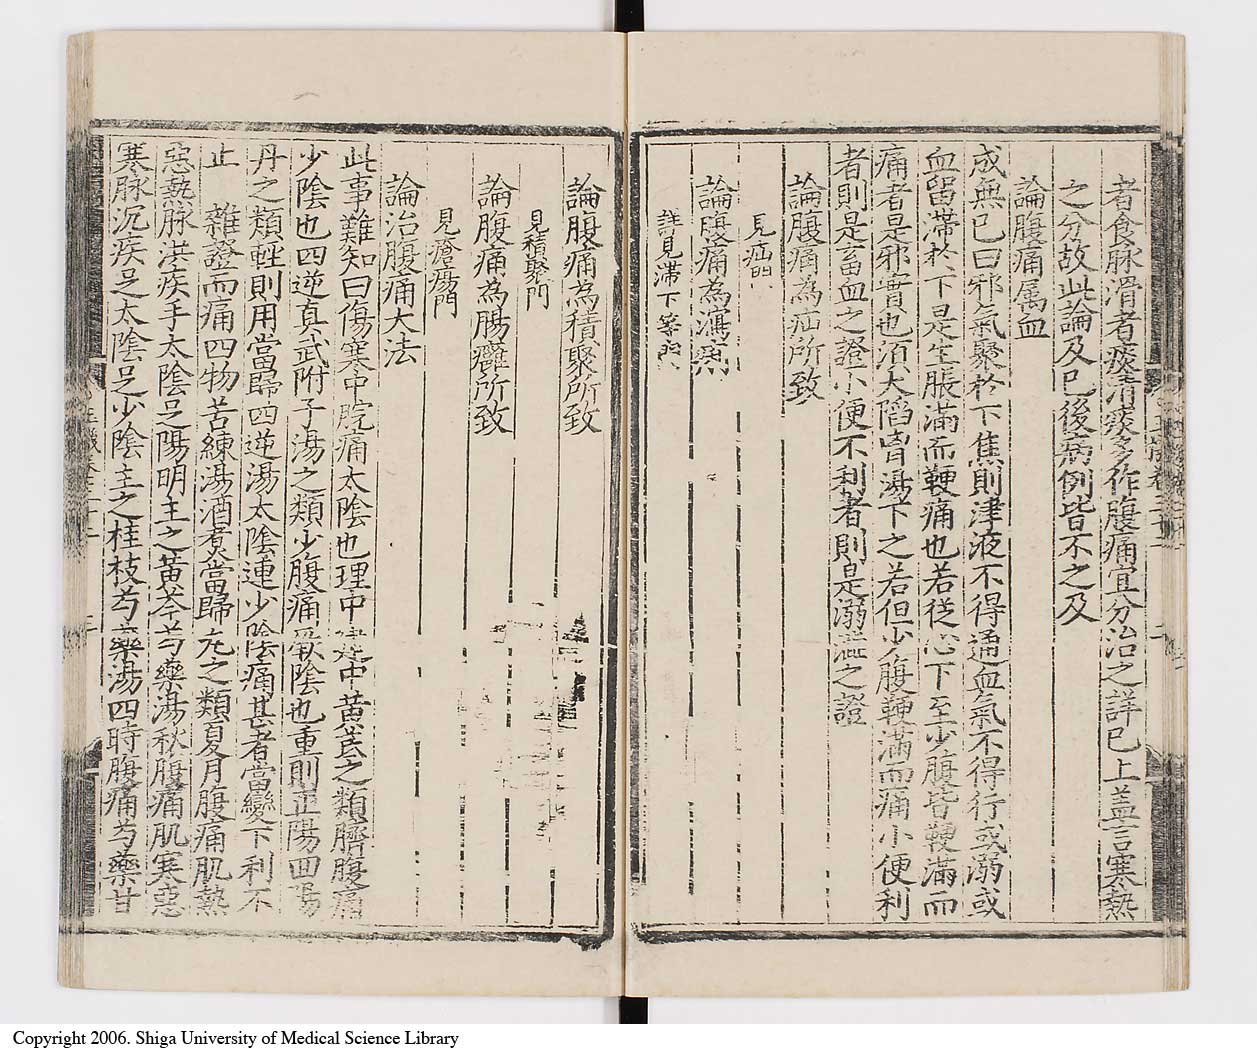 者食脉滑者痰清痰多作腹痛宜分治之詳已上蓋言寒熱
之分故此論及已後病例皆不之及
論腹痛属血
成無已曰邪氣聚於下焦則津液不得通血氣不得行或溺或
血留滯於下是生脹滿而鞕痛也若從心下至少腹皆鞕滿而
痛者是邪實也須大陷胷湯下之若但少腹鞕滿而痛小便利
者則是畜血之證小便不利者則是溺澁之證
論腹痛為疝所致
見疝門
論腹痛為瀉痢
詳見滯下等門
論腹痛為積聚所致
見積聚門
論腹痛為腸癰所致
見瘡瘍門
論治腹痛大法
此事難知曰傷寒中脘痛太陰也理中建中黃芪之類臍腹痛
少陰也四逆真武附子湯之類少腹痛厥陰也重則正陽回陽
丹之類輕則用當歸四逆湯太陰連少陰痛甚者當變下利不
止 雜證而痛四物苦練湯酒煮當歸丸之類夏月腹痛肌熱
惡熱脉洪疾手太陰足陽明主之黃芩芍藥湯秋腹痛肌寒惡
寒脉沉疾足太陰足少陰主之桂枝芍藥湯四時腹痛芍藥甘
Copyright 2006. Shiga University of Medical Science Library